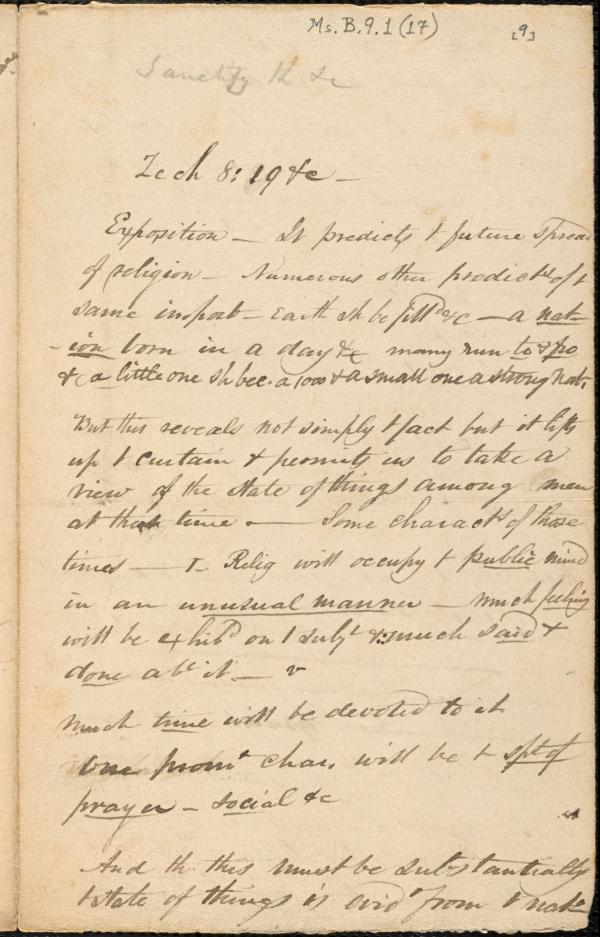 Ms. B.9.1 (17) [9]
Sanctify th &c
Zech 8: 19 &c —
Exposition — It predicts t future spread
of religion — Numerous other predicts of t
same import — Earth sh be filld &c — a nat-
-ion born in a day &c many run to & fro
& a little one sh bec. a 1000 & a small one a strong nat.
But this reveals not simply t fact but it lifts
up t curtain & permits us to take a
view of the state of things among men
at that time — Some characts of those
times — I. Relig will occupy t public mind
in an unusual manner — much feeling
will be exhibd on t subjt & much said &
done abt it — v
Much time will be devoted to it
One promt char. will be t spt of
prayer — social &c
And th this must be substantially
t state of things is evidt from t natr